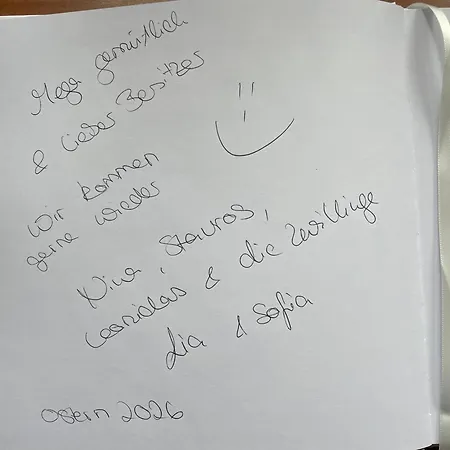 Mega gemütlich
& lieber Besitzer
Wir kommen
gerne wieder
Nina, Stavros,
Leonidas & die Zwillinge
Lia & Sofia
Ostern 2026